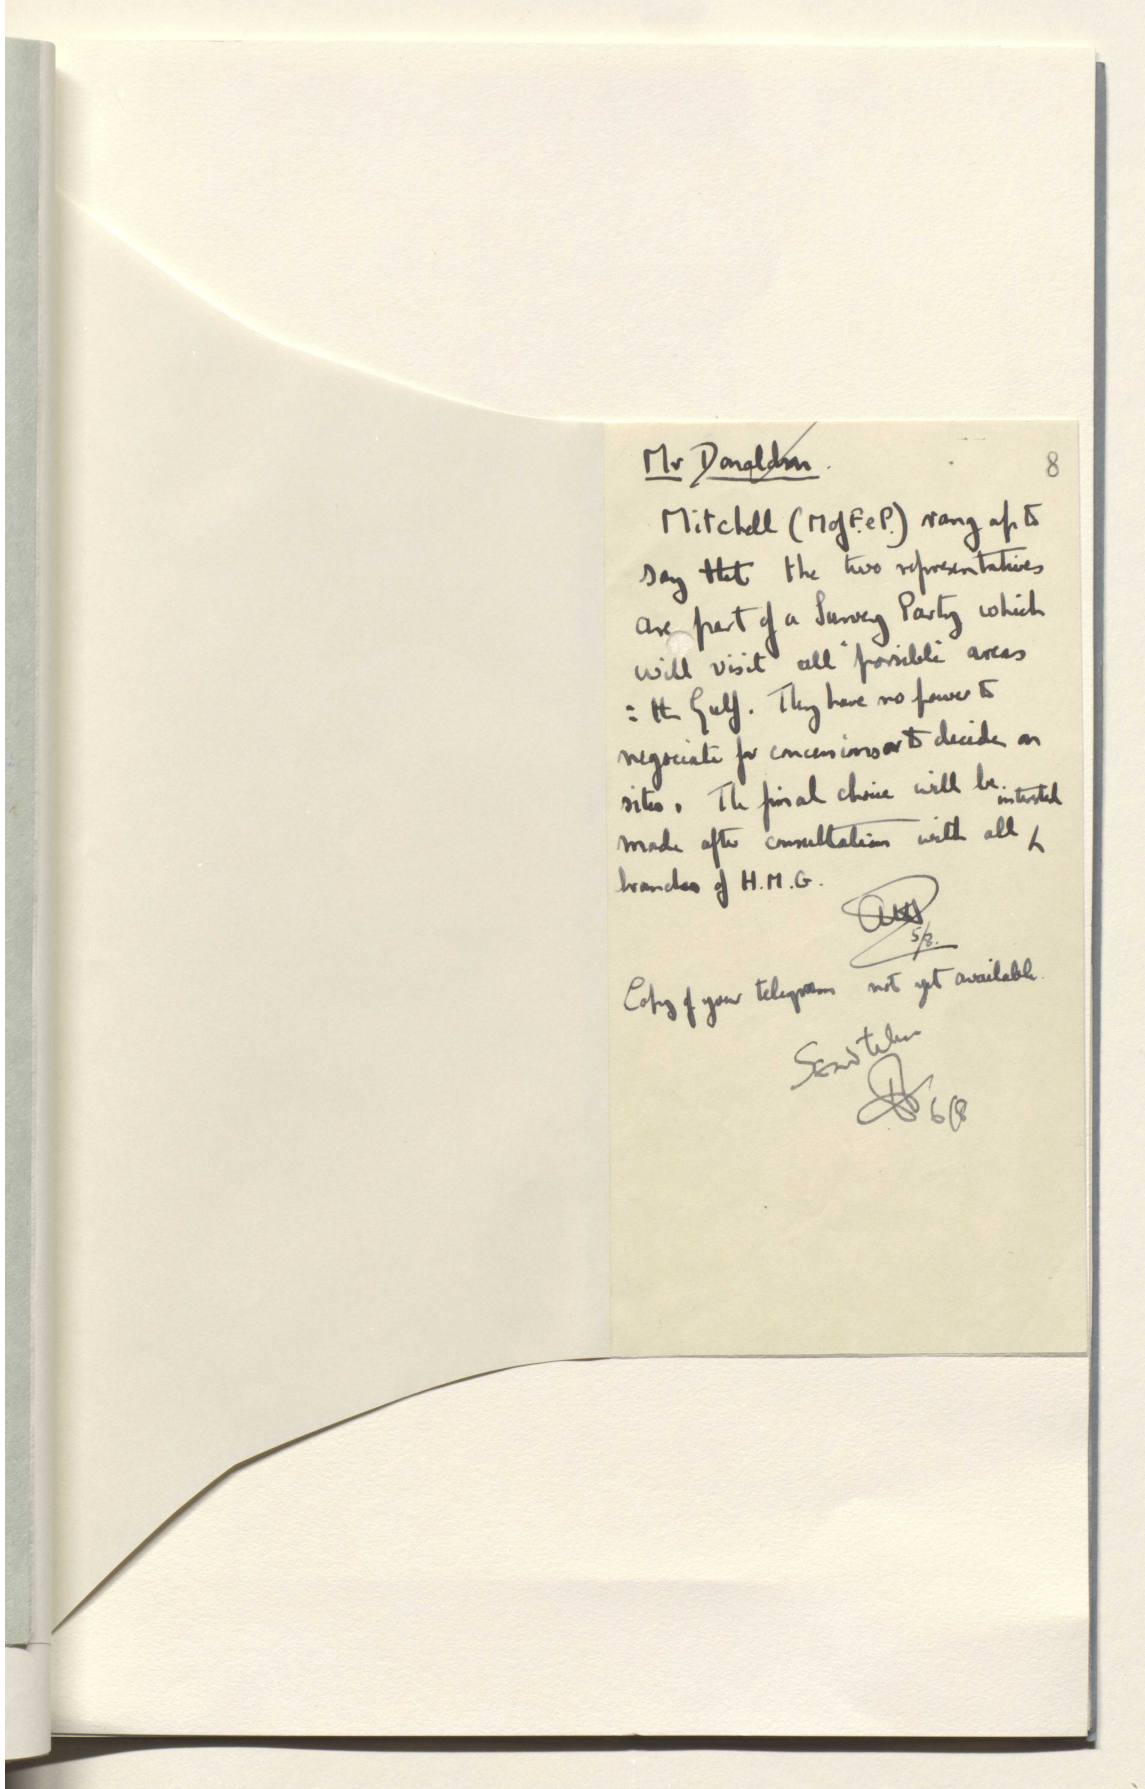 Mr Donaldson.
8
Mitchell (M of F. & P.) rang up to
say that the two representatives
are part of a Survey Party which
will visit all "possible" areas
in the Gulf. They have no power to
negociate for concessions or to decide on
sites. The final choice will be
made after consultation with all interested
branches of H.M.G.
5/8.
Copy of your telegram not yet available.
Send
6/8